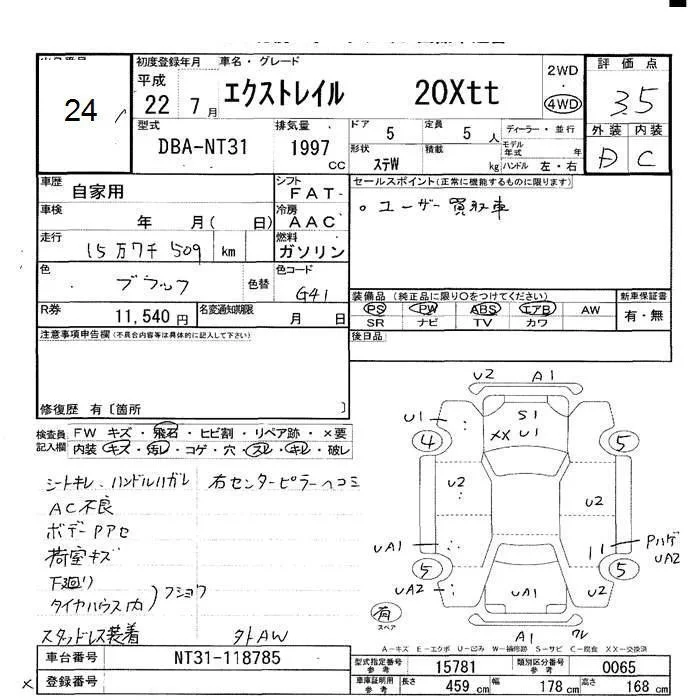 初度登録年月 車名・グレード 評価点
24 平成 22 7月 エクストレイル 20Xtt 2WD 4WD 3.5
型式 DBA-NT31 排気量 1997 CC ドア 5 定員 5人 ディーラー・並行 外装 内装
形状 ステW 積載 kg モデル年式 年 ハンドル 左・右 D C
車歴 自家用 シフト FAT セールスポイント(正常に機能するものに限ります)
車検 年 月( 日) 冷房 AAC 。ユーザー買取車
走行 15万7千509 km 燃料 ガソリン
色 ブラック 色替 色コード G41
R券 11,540円 名変通知期限 月 日
装備品(純正品に限り○をつけてください) 新車保証書
PS PW ABS エアB AW 有・無
SR ナビ TV カワ
注意事項申告欄(不具合内容等は具体的に記入して下さい) 後日品
修復歴 有〔箇所 〕
検査員記入欄 FW キズ・飛石・ヒビ割・リペア跡・×要
内装 キズ・汚レ・コゲ・穴・スレ・キレ・破レ
シートキレ、ハンドルハガレ 右センターピラーヘコミ
AC不良
ボデーPアセ
荷室キズ
下廻り
タイヤハウス内 フショク
スタッドレス装着 外AW
U2 A1
U1 S1
XX U1
4 5
U2 U2
UA1 Pハゲ
UA2
5 5
UA2 UA1 U2
有
スペア A1 ワレ
A-キズ E-エクボ U-凹み W-補修跡 S-サビ C-腐食 XX-交換済
車台番号 NT31-118785 型式指定番号 参考 15781 類別区分番号 参考 0065
登録番号 車庫証明用 参考 長さ 459 cm 幅 178 cm 高さ 168 cm